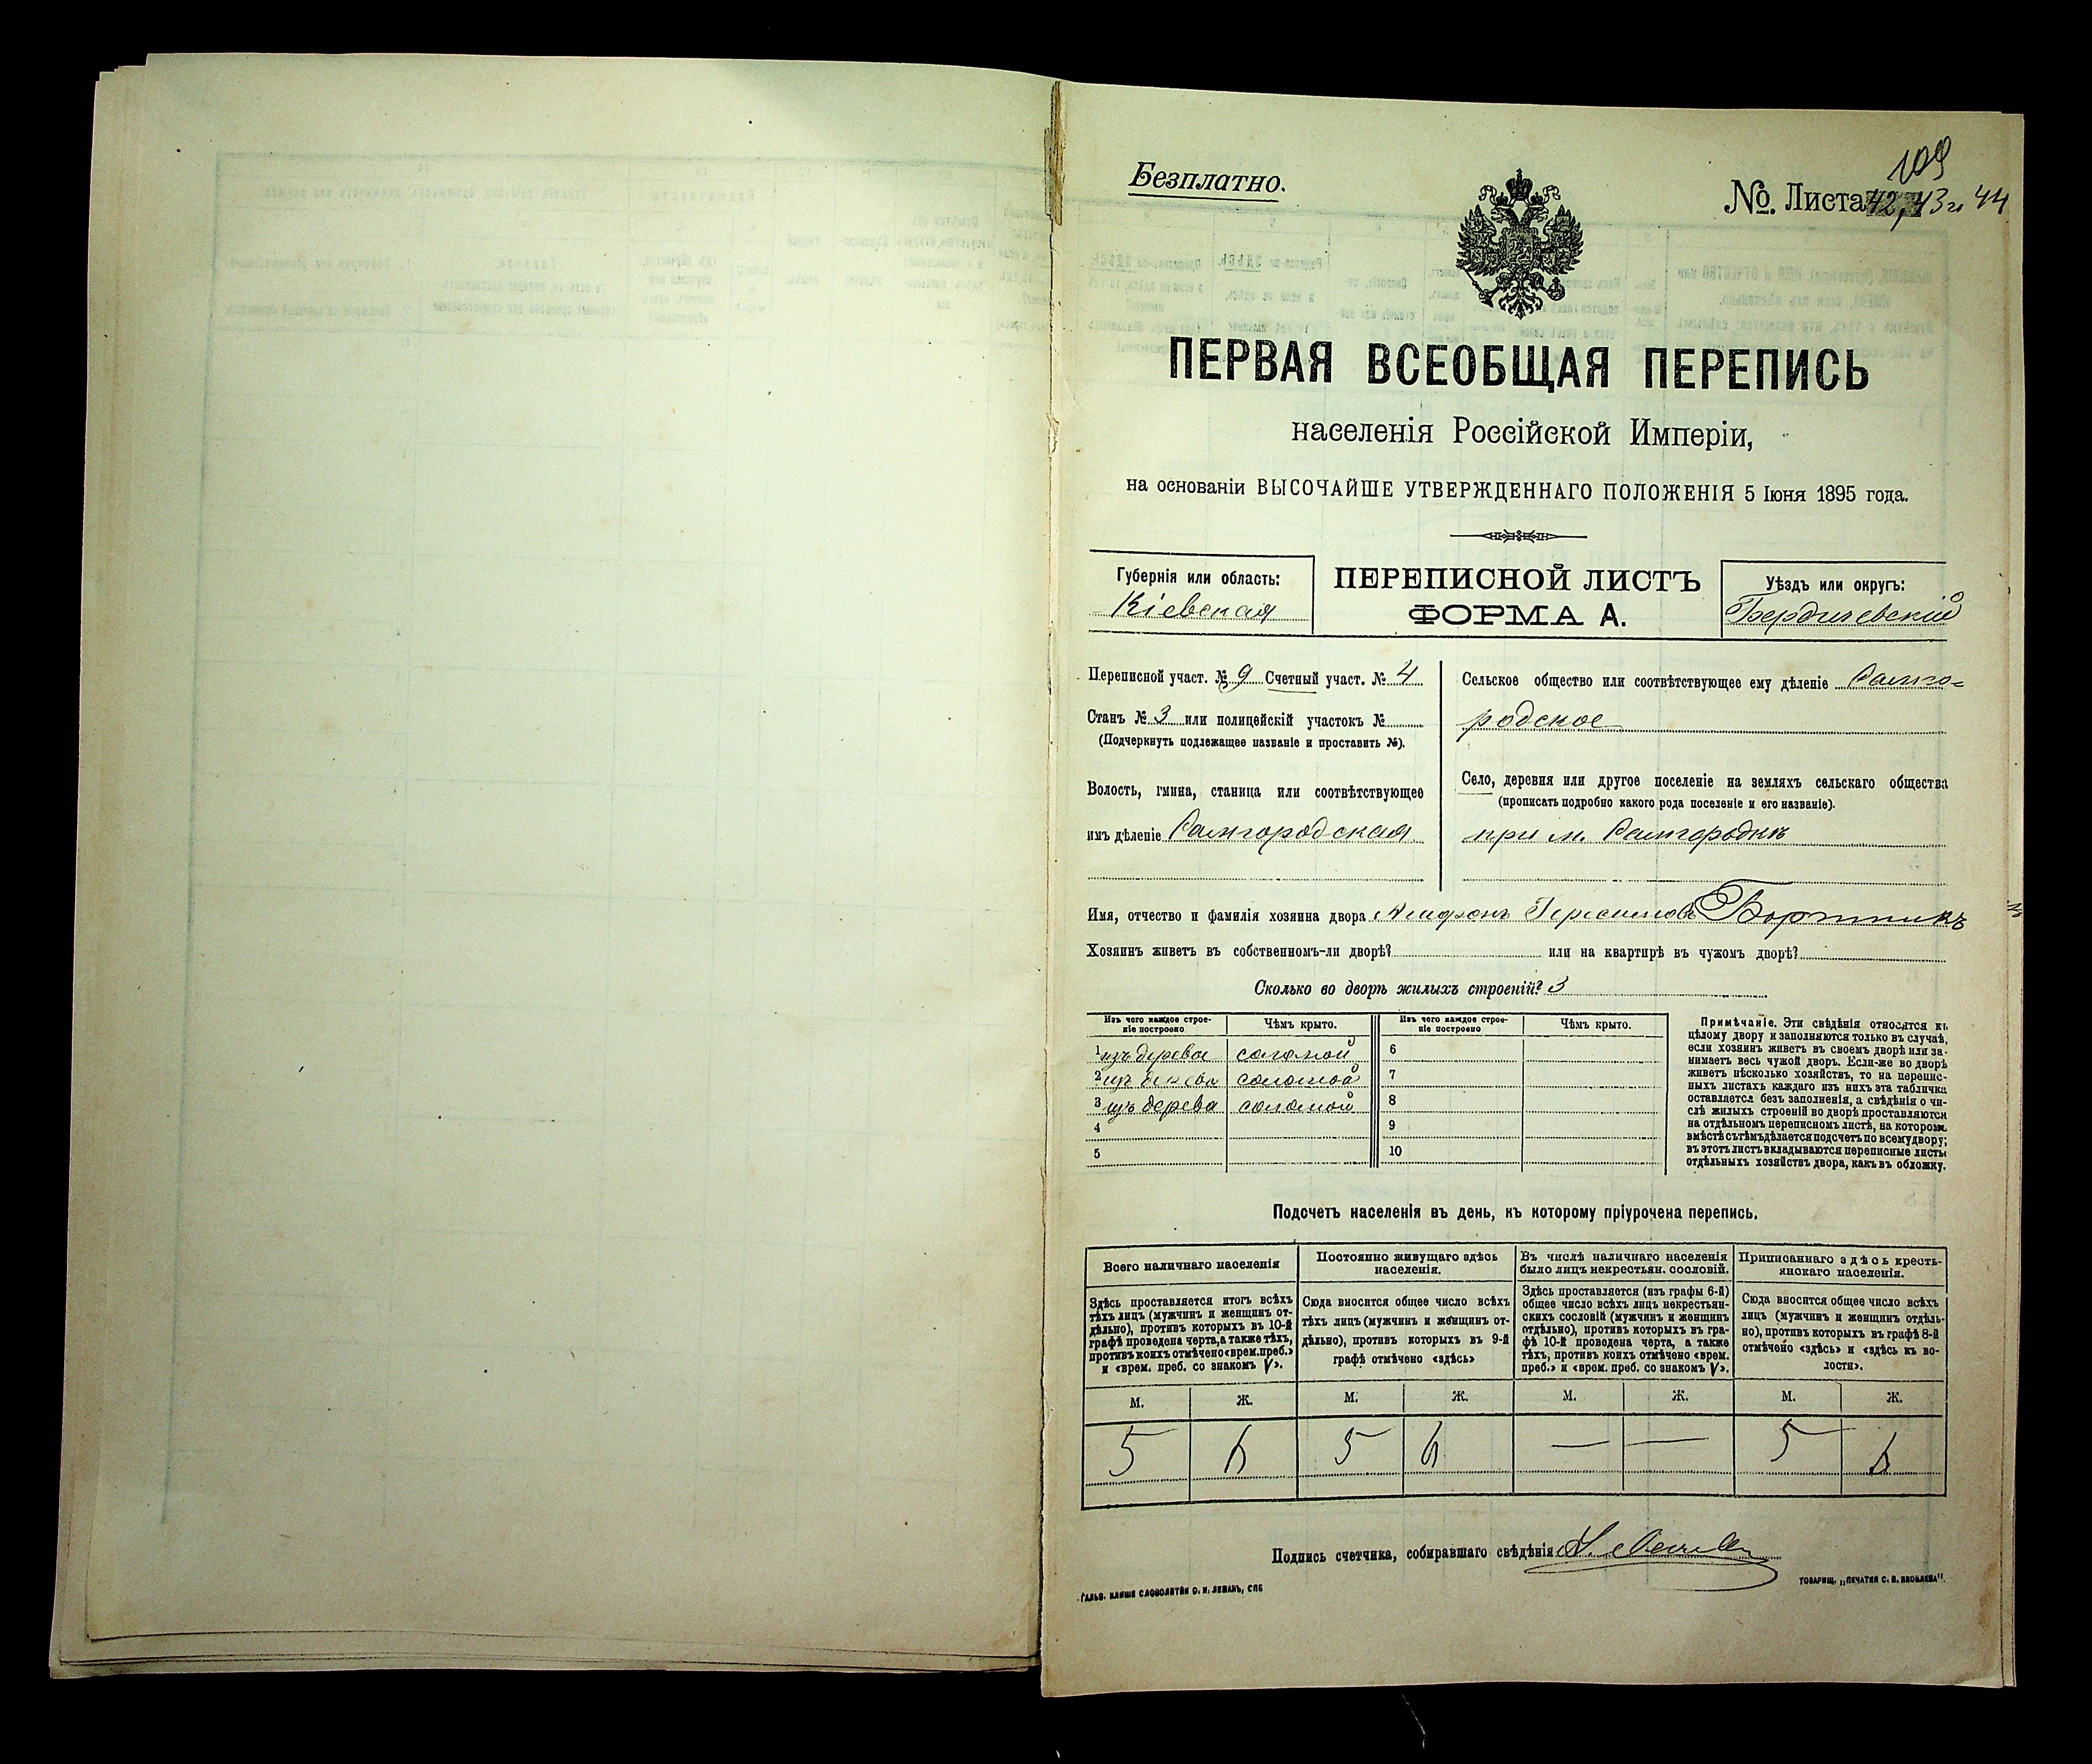 109
Безплатно.
№. Листа 42, 43 и 44
ПЕРВАЯ ВСЕОБЩАЯ ПЕРЕПИСЬ
населенія Россійской Имперіи,
на основаніи ВЫСОЧАЙШЕ УТВЕРЖДЕННАГО ПОЛОЖЕНІЯ 5 Іюня 1895 года.
Губернія или область:
Кіевская
ПЕРЕПИСНОЙ ЛИСТЪ
ФОРМА А.
Уѣздъ или округъ:
Бердичевскій
Переписной участ. № 9 Счетный участ. № 4
Станъ № 3 или полицейскій участокъ №
(Подчеркнуть подлежащее названіе и проставить №).
Волость, гмина, станица или соотвѣтствующее
имъ дѣленіе Самгородская
Сельское общество или соотвѣтствующее ему дѣленіе Самго=
родское
Село, деревня или другое поселеніе на земляхъ сельскаго общества
(прописать подробно какого рода поселеніе и его названіе).
при м. Самгородкѣ
Имя, отчество и фамилія хозяина двора Бортникъ
Хозяинъ живетъ въ собственномъ-ли дворѣ? или на квартирѣ въ чужомъ дворѣ?
Сколько во дворѣ жилыхъ строеній? 3
Изъ чего каждое строе-
ніе построено
Чѣмъ крыто.
Изъ чего каждое строе-
ніе построено
Чѣмъ крыто.
1 изъ дерева соломой 6
2 изъ дерева соломой 7
3 изъ дерева соломой 8
4 9
5 10
Примѣчаніе. Эти свѣдѣнія относятся къ
цѣлому двору и заполняются только въ случаѣ,
если хозяинъ живетъ въ своемъ дворѣ или за-
нимаетъ весь чужой дворъ. Если-же во дворѣ
живетъ нѣсколько хозяйствъ, то на перепис-
ныхъ листахъ каждаго изъ нихъ эта табличка
оставляется безъ заполненія, а свѣдѣнія о чи-
слѣ жилыхъ строеній во дворѣ проставляются
на отдѣльномъ переписномъ листѣ, на которомъ
вмѣстѣ съ тѣмъ дѣлается подсчетъ по всему двору;
въ этотъ листъ вкладываются переписные листы
отдѣльныхъ хозяйствъ двора, какъ въ обложку.
Подсчетъ населенія въ день, къ которому пріурочена перепись.
Всего наличнаго населенія
Здѣсь проставляется итогъ всѣхъ
тѣхъ лицъ (мужчинъ и женщинъ от-
дѣльно), противъ которыхъ въ 10-й
графѣ проведена черта, а также тѣхъ,
противъ коихъ отмѣчено «врем. преб.»
и «врем. преб. со знакомъ V».
Постоянно живущаго здѣсь
населенія.
Сюда вносится общее число всѣхъ
тѣхъ лицъ (мужчинъ и женщинъ от-
дѣльно), противъ которыхъ въ 9-й
графѣ отмѣчено «здѣсь»
Въ числѣ наличнаго населенія
было лицъ некрестьян. сословій.
Здѣсь проставляется (изъ графы 6-й)
общее число всѣхъ лицъ некрестьян-
скихъ сословій (мужчинъ и женщинъ
отдѣльно), противъ которыхъ въ гра-
фѣ 10-й проведена черта, а также
тѣхъ, противъ коихъ отмѣчено «врем.
преб.» и «врем. преб. со знакомъ V».
Приписаннаго здѣсь кресть-
янскаго населенія.
Сюда вносится общее число всѣхъ
лицъ (мужчинъ и женщинъ отдѣль-
но), противъ которыхъ въ графѣ 8-й
отмѣчено «здѣсь» и «здѣсь къ во-
лости».
М. Ж. М. Ж. М. Ж. М. Ж.
5 6 5 6 — — 5 6
Подпись счетчика, собиравшаго свѣдѣнія
Гальв. клише словолитни О. И. Леманъ, СПБ
ТОВАРИЩ. „ПЕЧАТНЯ С. П. ЯКОВЛЕВА".